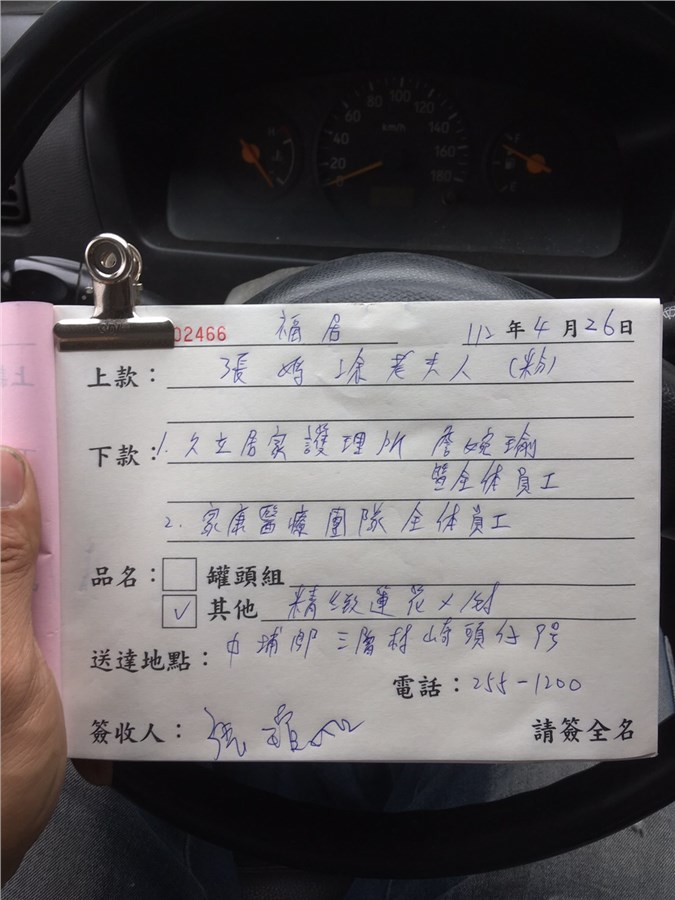 120
100
80
60
40
20
0
140
160
180
km/h
H
F
E
02466 福居 112年4月26日
上款： 張媽 涂老夫人 (粉)
下款： 1. 久立居家護理所 詹婉瑜
暨全体員工
2. 家康醫療團隊 全体員工
品名： 罐頭組
✓ 其他 精緻蓮花×1対
送達地點： 中埔鄉 三層村 崎頭仔 9号
電話：255-1200
簽收人： 張 請簽全名